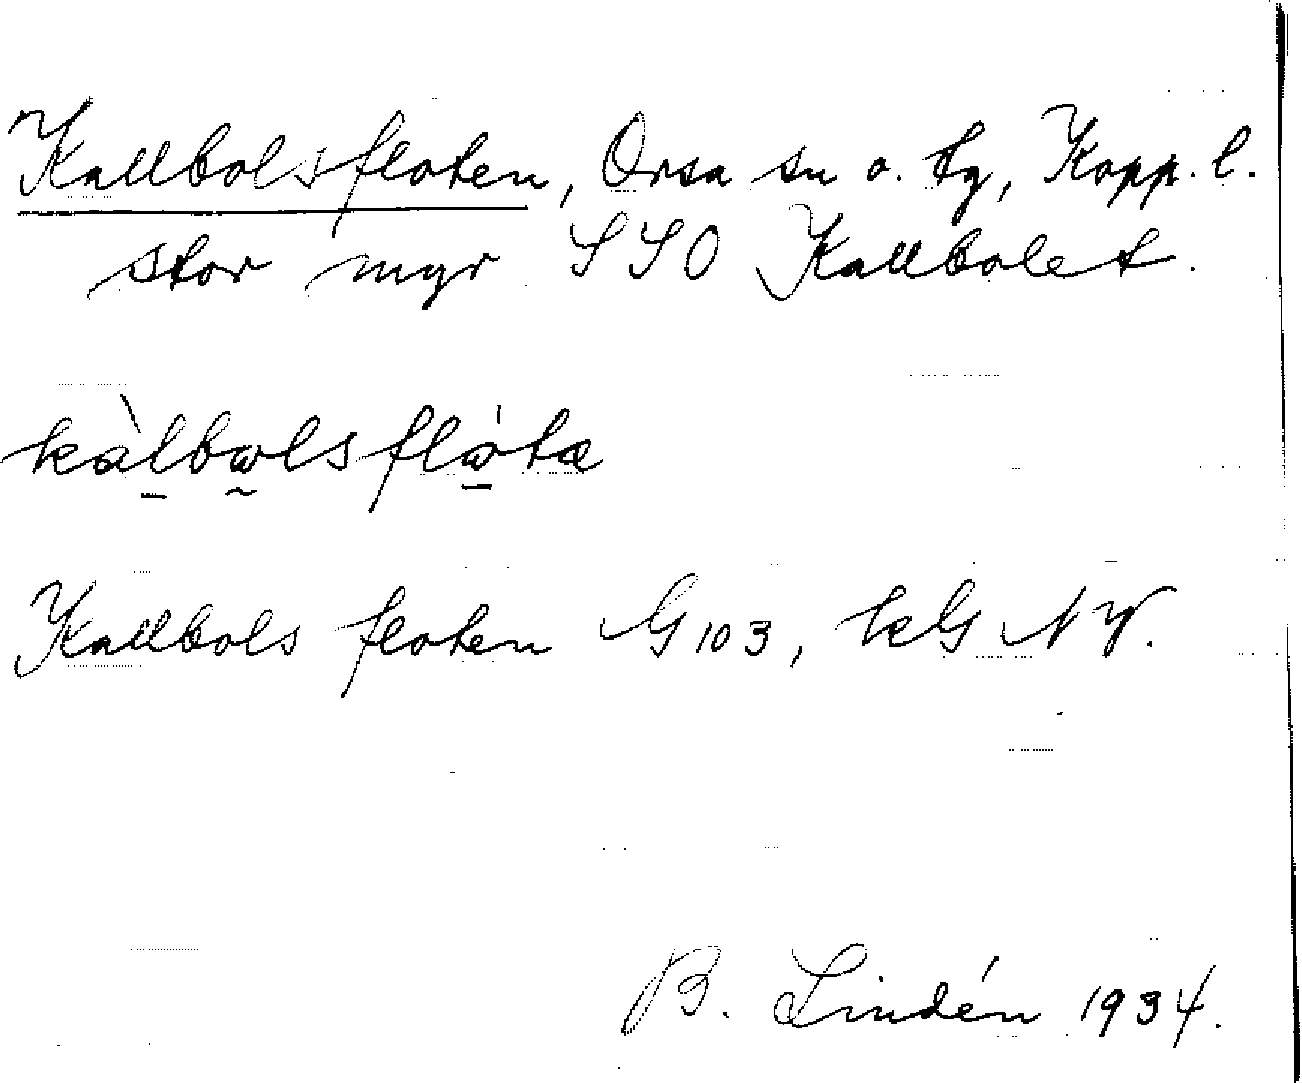 Kallbolsfloten, Orsa sn o. tg, Kopp. l.
stor myr SSO Kallbolet.
kàlbωlsflω̍ta
Kallbols floten G 103, kG NV.
B. Lindén 1934.